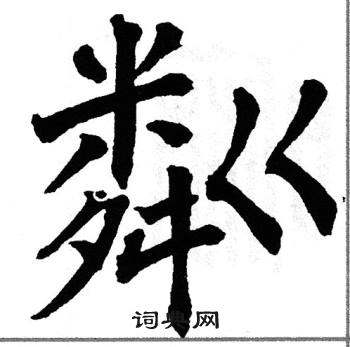 粼
词典网